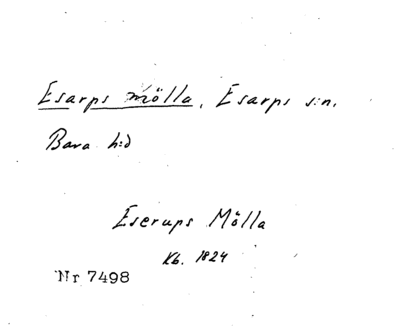 Esarps mölla, Esarps s:n.
Bara h:d
Eserups Mölla
Kb. 1824
Nr 7498